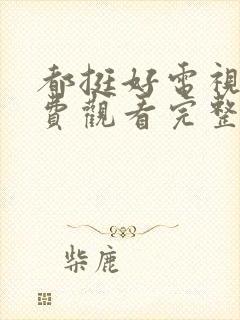 都挺好電視
費觀看完整
柴鹿